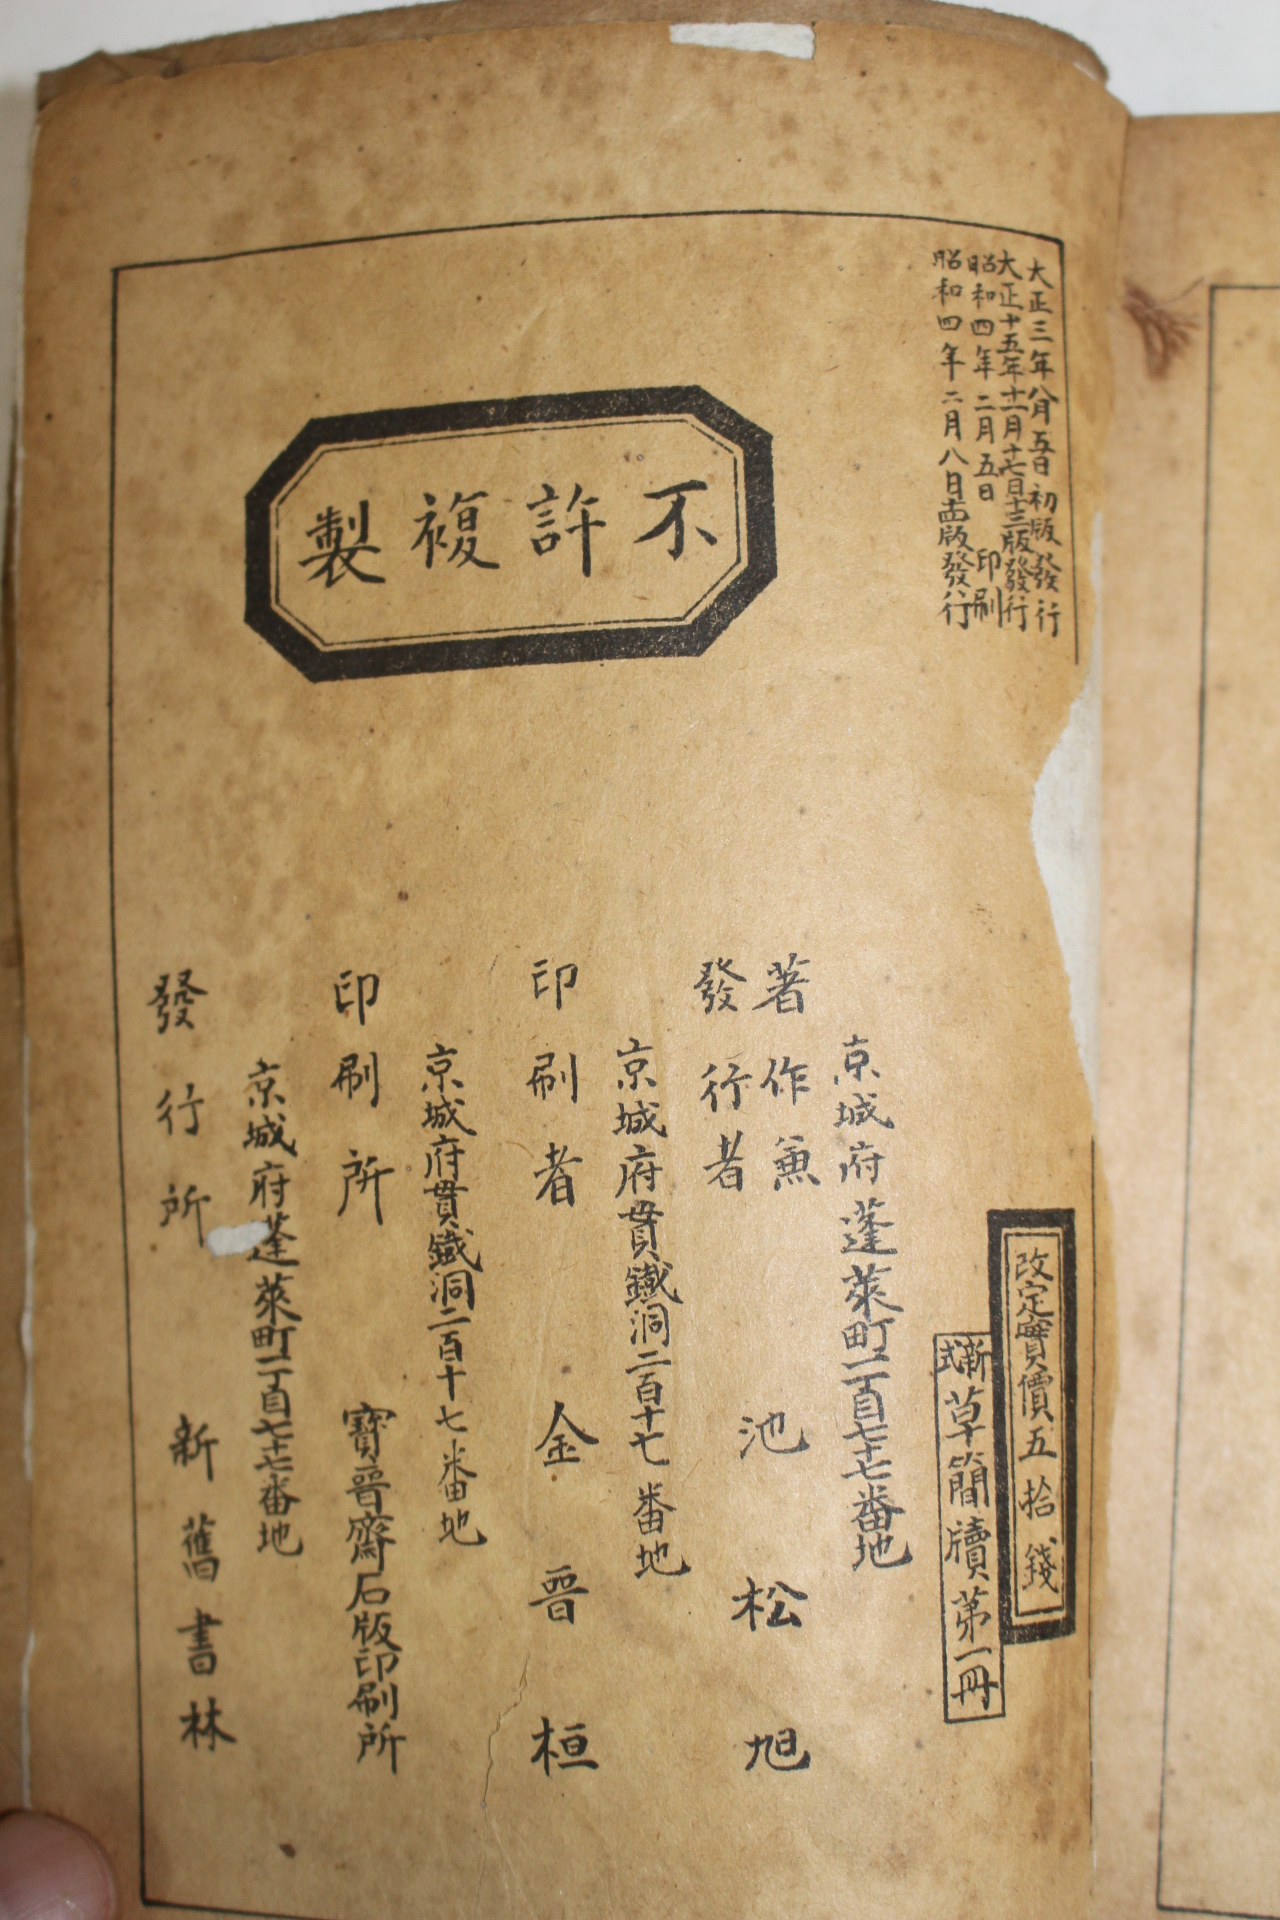 大正三年八月五日初版發行
大正十五年十一月十七日十三版發行
昭和四年二月五日印刷
昭和四年二月八日十四版發行
不許複製
改定實價五拾錢
新式草簡牘第一冊
京城府蓬萊町一丁目七十七番地
著作兼
發行者
池松旭
京城府貫鐵洞二百十七番地
印刷者 金晉桓
京城府貫鐵洞二百十七番地
印刷所 寶晉齋石版印刷所
京城府蓬萊町一丁目七十七番地
發行所 新舊書林